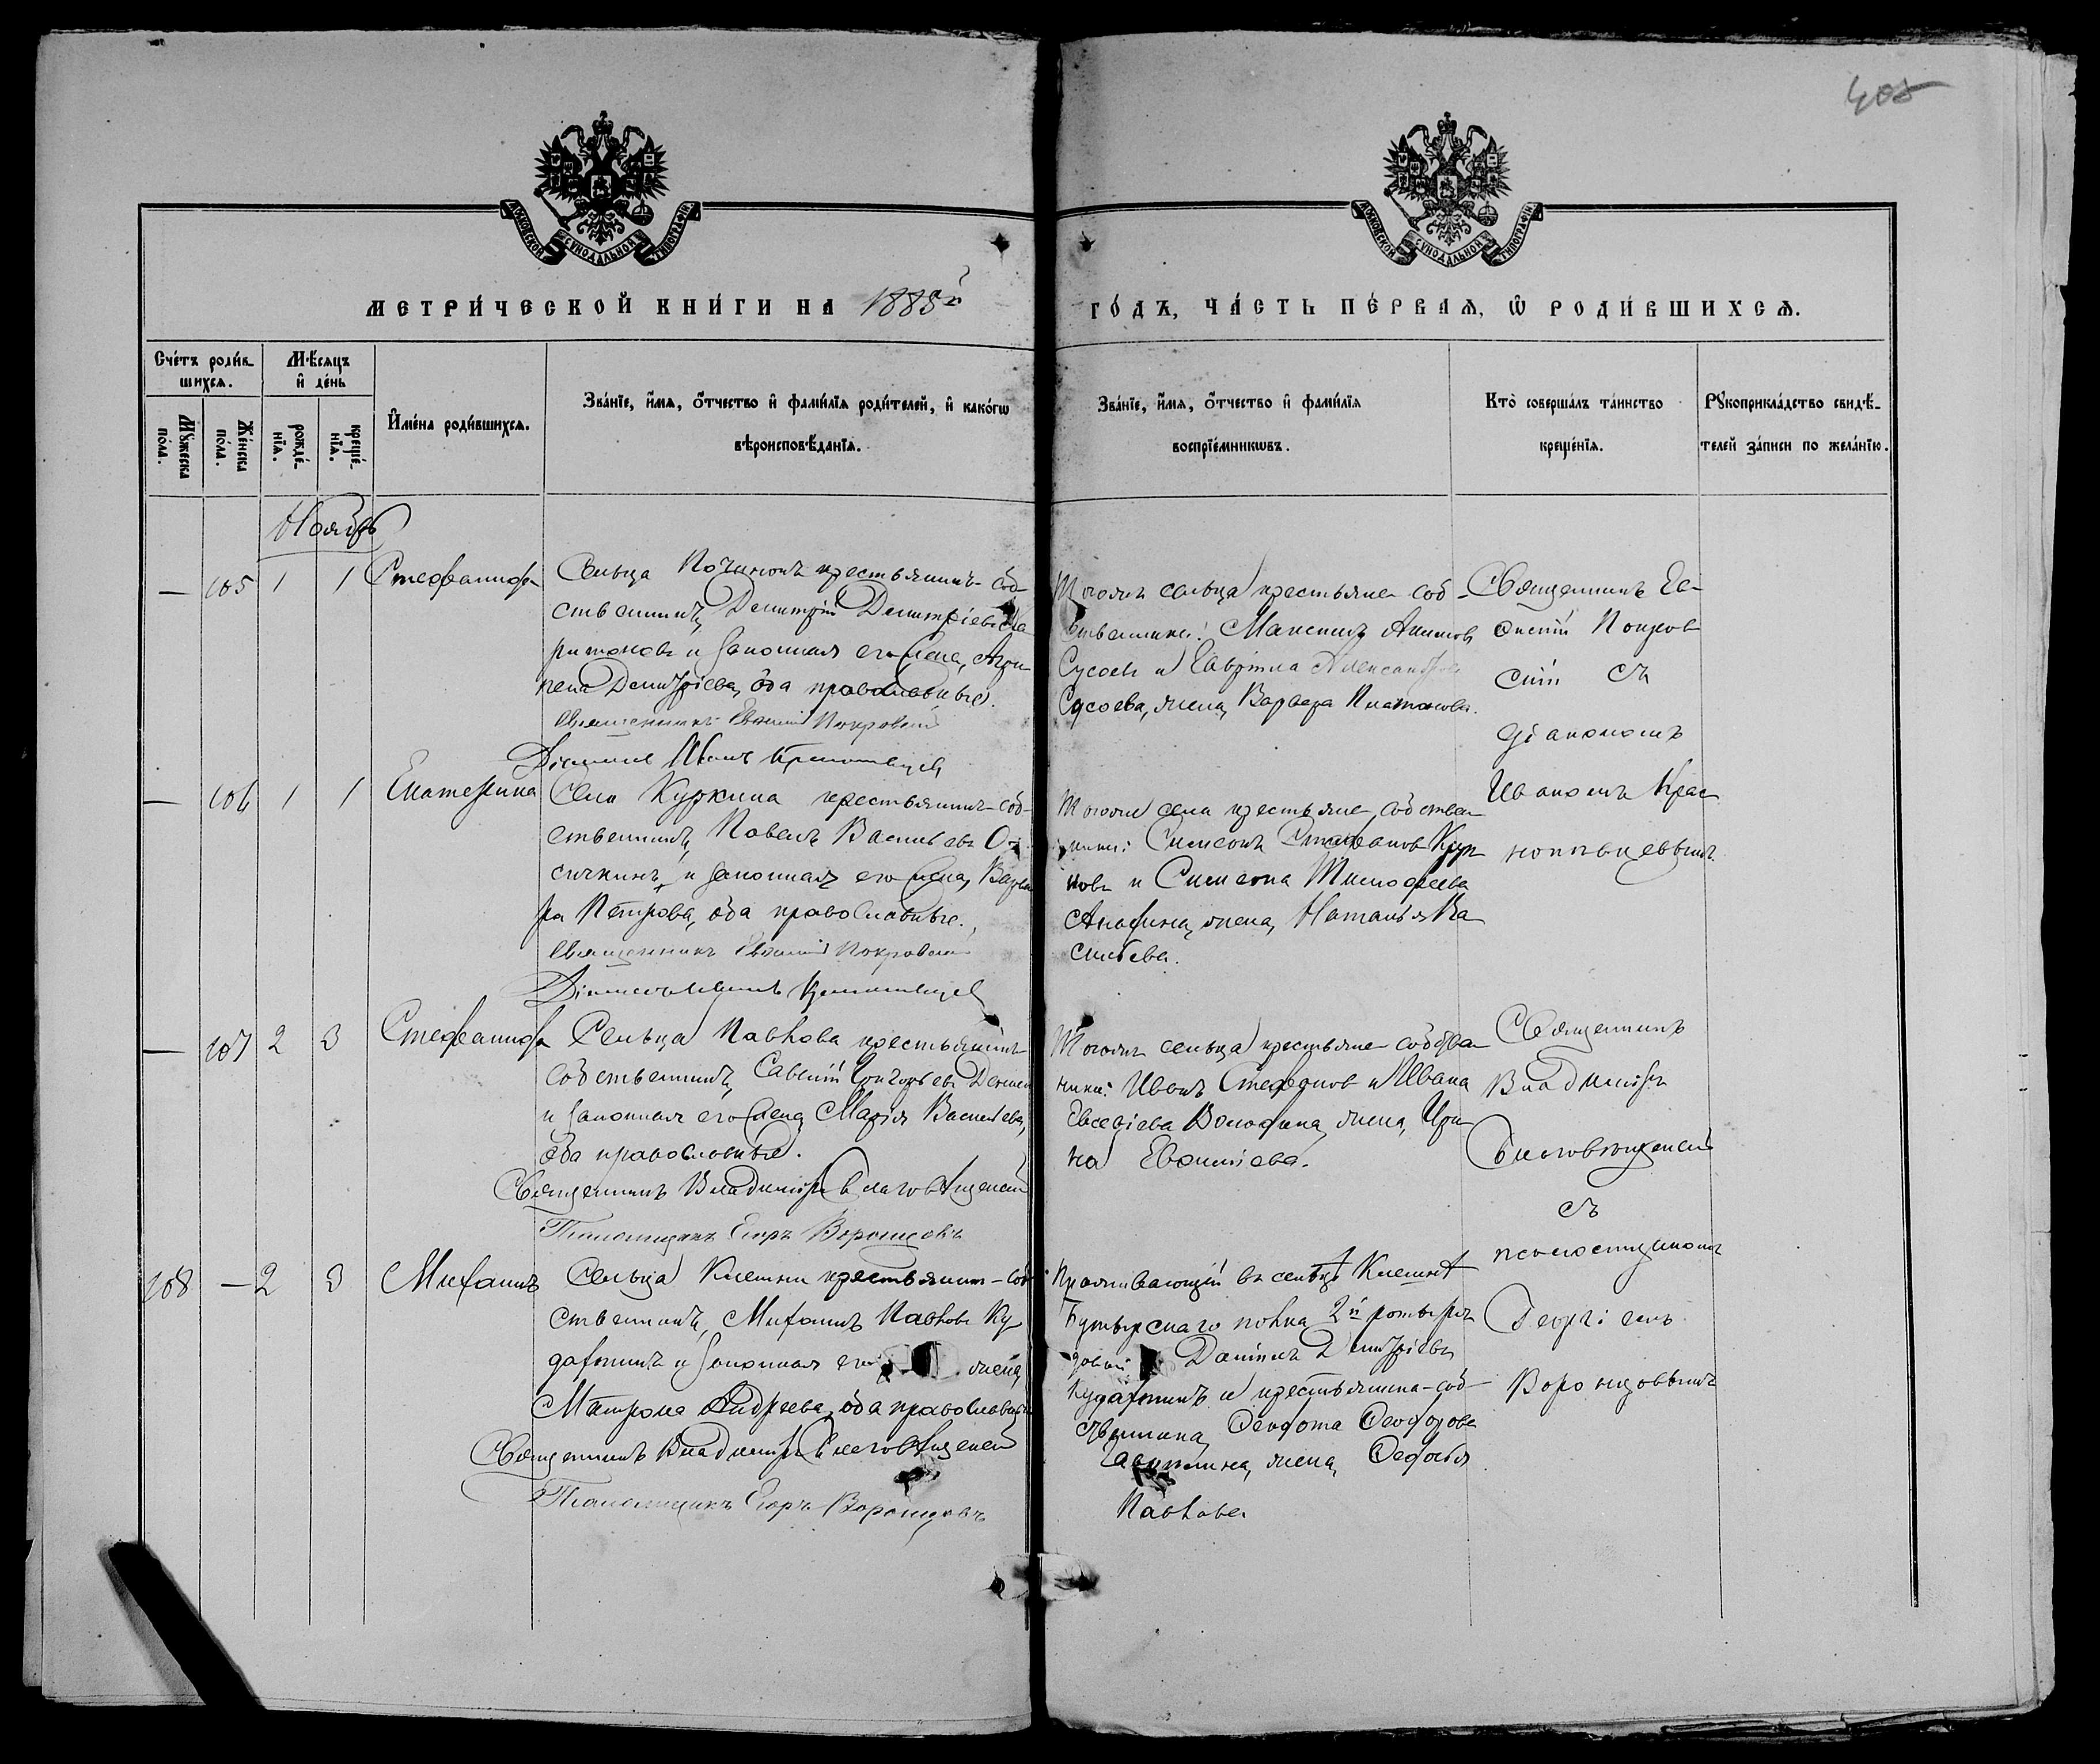 408
МОСКОВСКОЙ СУНОДАЛЬНОЙ ТИПОГРАФІИ
МОСКОВСКОЙ СУНОДАЛЬНОЙ ТИПОГРАФІИ
МЕТРИ́ЧЕСКОЙ КНИ́ГИ НА 1885й
ГО́ДЪ, ЧА́СТЬ ПЕ́РВАѦ, Ѡ РОДИ́ВШИХСѦ.
Сче́тъ роди́в-
шихсѧ.
Мѣ́сѧцъ
и҆ де́нь
И҆мена̀ роди́вшихсѧ.
Зва́нїе, и҆́мѧ, ѻ҆́тчество и҆ фами́лїѧ роди́телей, и҆ како́гѡ
вѣроисповѣ́данїѧ.
Зва́нїе, и҆́мѧ, ѻ҆́тчество и҆ фами́лїѧ
воспрїе́мникѡвъ.
Кто̀ соверша́лъ та́инство
креще́нїѧ.
Рꙋкоприкла́дство свидѣ́-
телей за́писи по жела́нїю.
Мꙋ́жеска
по́ла.
Же́нска
по́ла.
рожде́-
нїѧ.
креще́-
нїѧ.
Ноябрь
— 105 1 1 Стефанида
Сельца Починокъ крестьянинъ-соб-
ственникъ Димитрій Димитріевъ Ха
ритоновъ и законная его жена, Агри
пена Димитріева, оба православные.
Священникъ Евѳимій Покровскій
Діаконъ Иванъ Краснопѣвцевъ
Тогоже сельца крестьяне соб-
ственники: Максимъ Акимовъ
Сусоевъ и Гавріила Александрова
Сусоева, жена, Варвара Платонова.
Священникъ Ев-
ѳимій Покров
скій съ
діакономъ
Иваномъ Крас
нопѣвцевымъ
— 106 1 1 Екатерина
Села Куркина крестьянинъ-соб-
ственникъ, Павелъ Васильевъ
и законная его жена, Варва
ра Петрова, оба православные.
Священникъ Евѳимій Покровскій
Діаконъ Иванъ Краснопѣвцевъ
Тогоже села крестьяне собствен
ники: Симеонъ Стефановъ
и Симеона Тимофеева
жена, Наталья Ва
сильева.
— 107 2 3 Стефанида
Сельца Павлова крестьянинъ
собственникъ, Савелій Григорьевъ
и законная его жена Марія Васильева,
оба православные.
Священникъ Владиміръ Благовѣщенскій
Псаломщикъ Егоръ Воронцовъ
Тогоже сельца крестьяне собствен
ники: Иванъ Стефановъ и Ивана
Евсевіева Володина, жена, Ири
на Евѳиміева.
Священникъ
Владиміръ
Благовѣщенскій
съ
псаломщикомъ
Георгіемъ
Воронцовымъ
108 — 2 3 Михаилъ
Сельца Клешни крестьянинъ-соб
ственникъ, Михаилъ Павловъ Ку
дахтинъ и законная его жена,
Матрона Андреева, оба православные
Священникъ Владиміръ Благовѣщенскій
Псаломщикъ Егоръ Воронцовъ
Проживающій въ сельцѣ Клешнѣ
Бутырскаго полка 2й роты ря
довой Даніилъ Димитріевъ
Кудахтинъ и крестьянина-соб-
ственника, Феодота Феодорова
жена, Федосья
Павлова